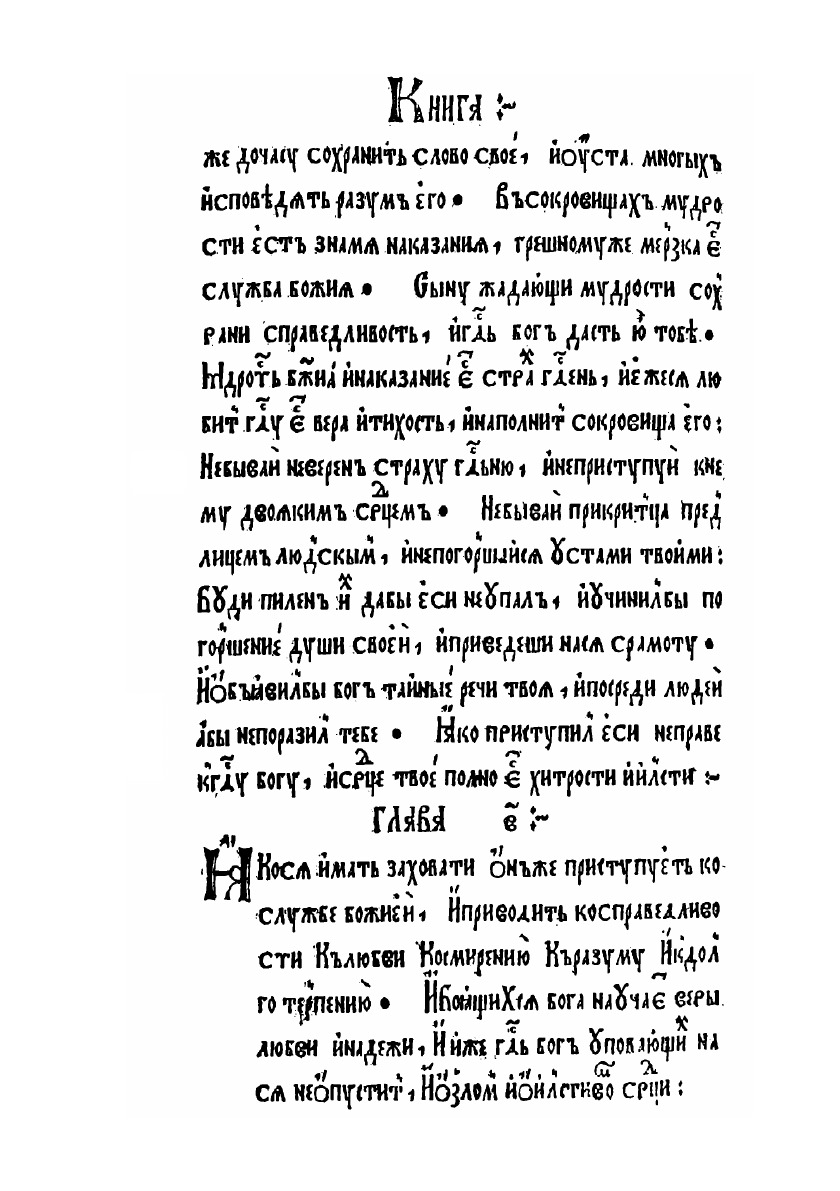 Книга :~
же дочасу сохранить слово свое́, йоуста многыхъ
йсповѣдять разумъ его • Въсокровищахъ мудро
сти есть знамя наказания, грешномуже мерзка є҃с
служба божия • Сыну жадающи мудрости сох
рани справедливость, йг҃дь богъ дасть ю тобѣ •
Мдрость бж҃иа йнаказание є҃с страⷯ г҃день, йежеся лю
бит г҃ду є҃с вера йтихость, йнаполнит сокровища его :
Небывай неверенъ страху г҃дьню, йнеприступуй кне
му двоякимъ срⷣцемъ • Небывай прикритца пред
лицемъ людскым, йнепогоршайся ꙋстами твоими :
Бꙋди пиленъ иⷯ дабы еси неꙋпалъ, йꙋчинилбы по
горшение души своей, йприведеши нася срамоту •
Йобъявилбы богъ тайные речи твоя, йпосреди людей
абы непоразил тебе • Яко приступил еси неправе
кг҃ду богу, йсрⷣце твое полно є҃с хитрости йлсти :~
Глава в҃ :~
Якося ймать заховати онъже приступуеть ко
службе божией, Йприводить косправедливо
сти Кълюбви Космирению Къразуму Йкдол
го терпению • Йбоящихся бога наꙋчає҃ веры
любви йнадежи, Й йже г҃дь богъ ꙋповающиⷯ на
ся неопустит, Йозлом йоилстивоⷨ срⷣци :